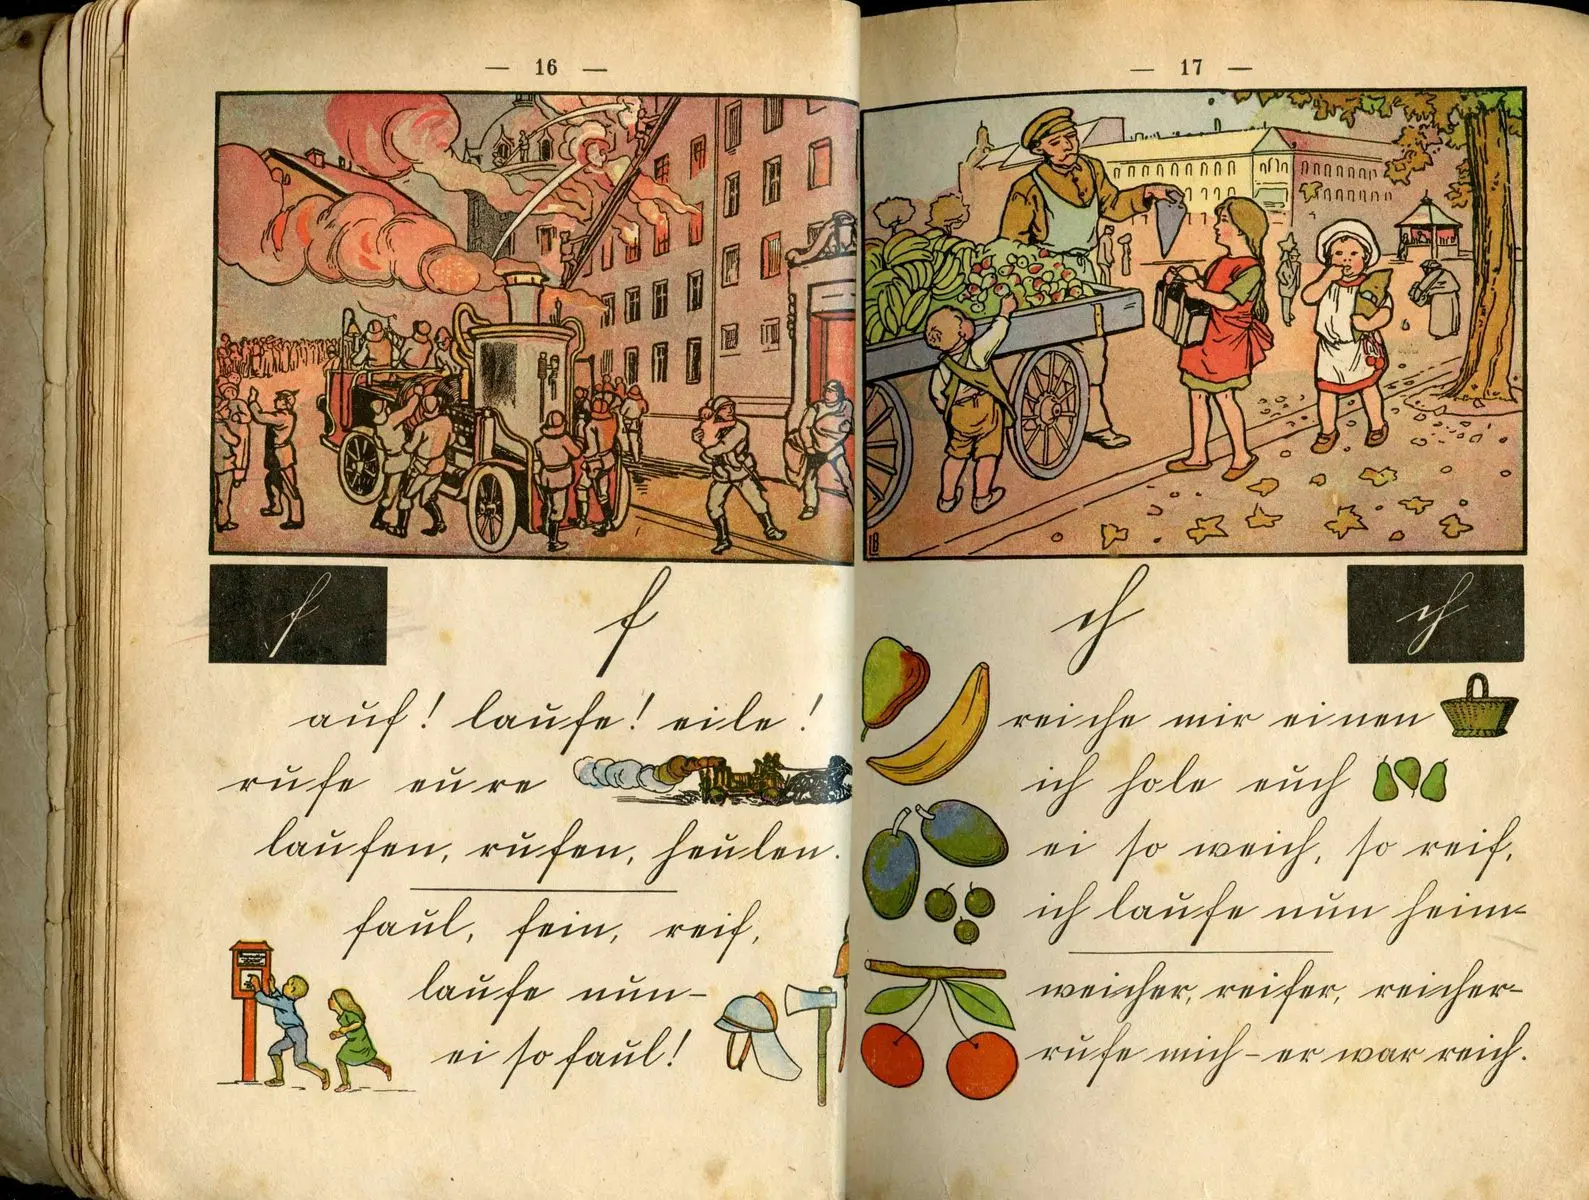 — 16 —
f f
auf! laufe! eile!
rufe eure
laufen, rufen, heulen.
faul, fein, reif,
laufe nun-
ei so faul!
— 17 —
ch ch
reiche mir einen
ich hole euch
ei so weich, so reif,
ich laufe nun heim-
weicher, reifer, reicher-
rufe mich - er war reich.